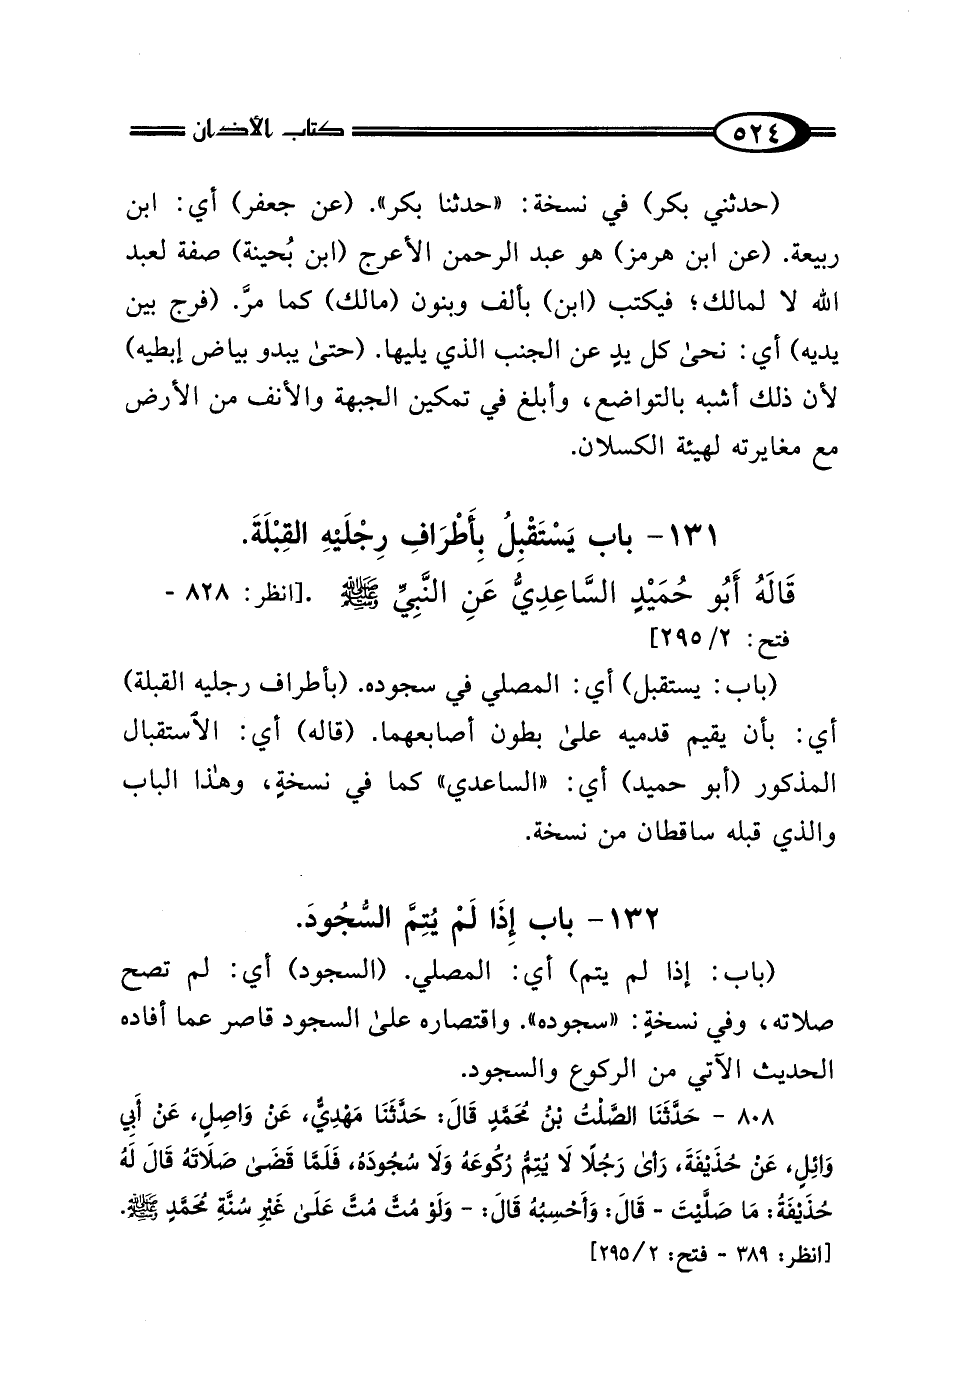 ٥٢٤ كتاب الأذان
(حدثني بكر) في نسخة: «حدثنا بكر». (عن جعفر) أي: ابن
ربيعة. (عن ابن هرمز) هو عبد الرحمن الأعرج (ابن بُحينة) صفة لعبد
الله لا لمالك؛ فيكتب (ابن) بألف وبنون (مالك) كما مرَّ. (فرج بين
يديه) أي: نحىٰ كل يدٍ عن الجنب الذي يليها. (حتىٰ يبدو بياض إبطيه)
لأن ذلك أشبه بالتواضع، وأبلغ في تمكين الجبهة والأنف من الأرض
مع مغايرته لهيئة الكسلان.
١٣١- باب يَسْتَقْبِلُ بِأَطْرَافِ رِجْلَيْهِ القِبْلَةَ.
قَالَهُ أَبُو حُمَيْدٍ السَّاعِدِيُّ عَنِ النَّبِيِّ ﷺ .[انظر: ٨٢٨ -
فتح: ٢/ ٢٩٥]
(باب: يستقبل) أي: المصلي في سجوده. (بأطراف رجليه القبلة)
أي: بأن يقيم قدميه علىٰ بطون أصابعهما. (قاله) أي: الأستقبال
المذكور (أبو حميد) أي: «الساعدي» كما في نسخةٍ، وهٰذا الباب
والذي قبله ساقطان من نسخة.
١٣٢- باب إِذَا لَمْ يُتِمَّ السُّجُودَ.
(باب: إذا لم يتم) أي: المصلي. (السجود) أي: لم تصح
صلاته، وفي نسخةٍ: «سجوده». واقتصاره علىٰ السجود قاصر عما أفاده
الحديث الآتي من الركوع والسجود.
٨٠٨ - حَدَّثَنَا الصَّلْتُ بْنُ مُحَمَّدٍ قَالَ: حَدَّثَنَا مَهْدِيٌّ، عَنْ وَاصِلٍ، عَنْ أَبِي
وَائِلٍ، عَنْ حُذَيْفَةَ، رَأىٰ رَجُلًا لَا يُتِمُّ رُكُوعَهُ وَلَا سُجُودَهُ، فَلَمَّا قَضَىٰ صَلَاتَهُ قَالَ لَهُ
حُذَيْفَةُ: مَا صَلَّيْتَ - قَالَ: وَأَحْسِبُهُ قَالَ: - وَلَوْ مُتَّ مُتَّ عَلَىٰ غَيْرِ سُنَّةِ مُحَمَّدٍ ﷺ.
[انظر: ٣٨٩ - فتح: ٢/ ٢٩٥]